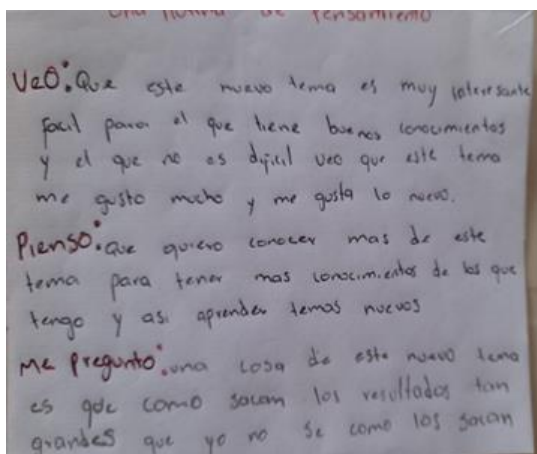 una rutina de Pensamiento
VeO: Que este nuevo tema es muy interesante
facil para el que tiene buenos conocimientos
y el que no es dificil veo que este tema
me gusto mucho y me gusta lo nuevo.
Pienso: que quiero conocer mas de este
tema para tener mas conocimientos de los que
tengo y asi aprender temas nuevos
Me pregunto: una cosa de este nuevo tema
es que como sacan los resultados tan
grandes que yo no se como los sacan